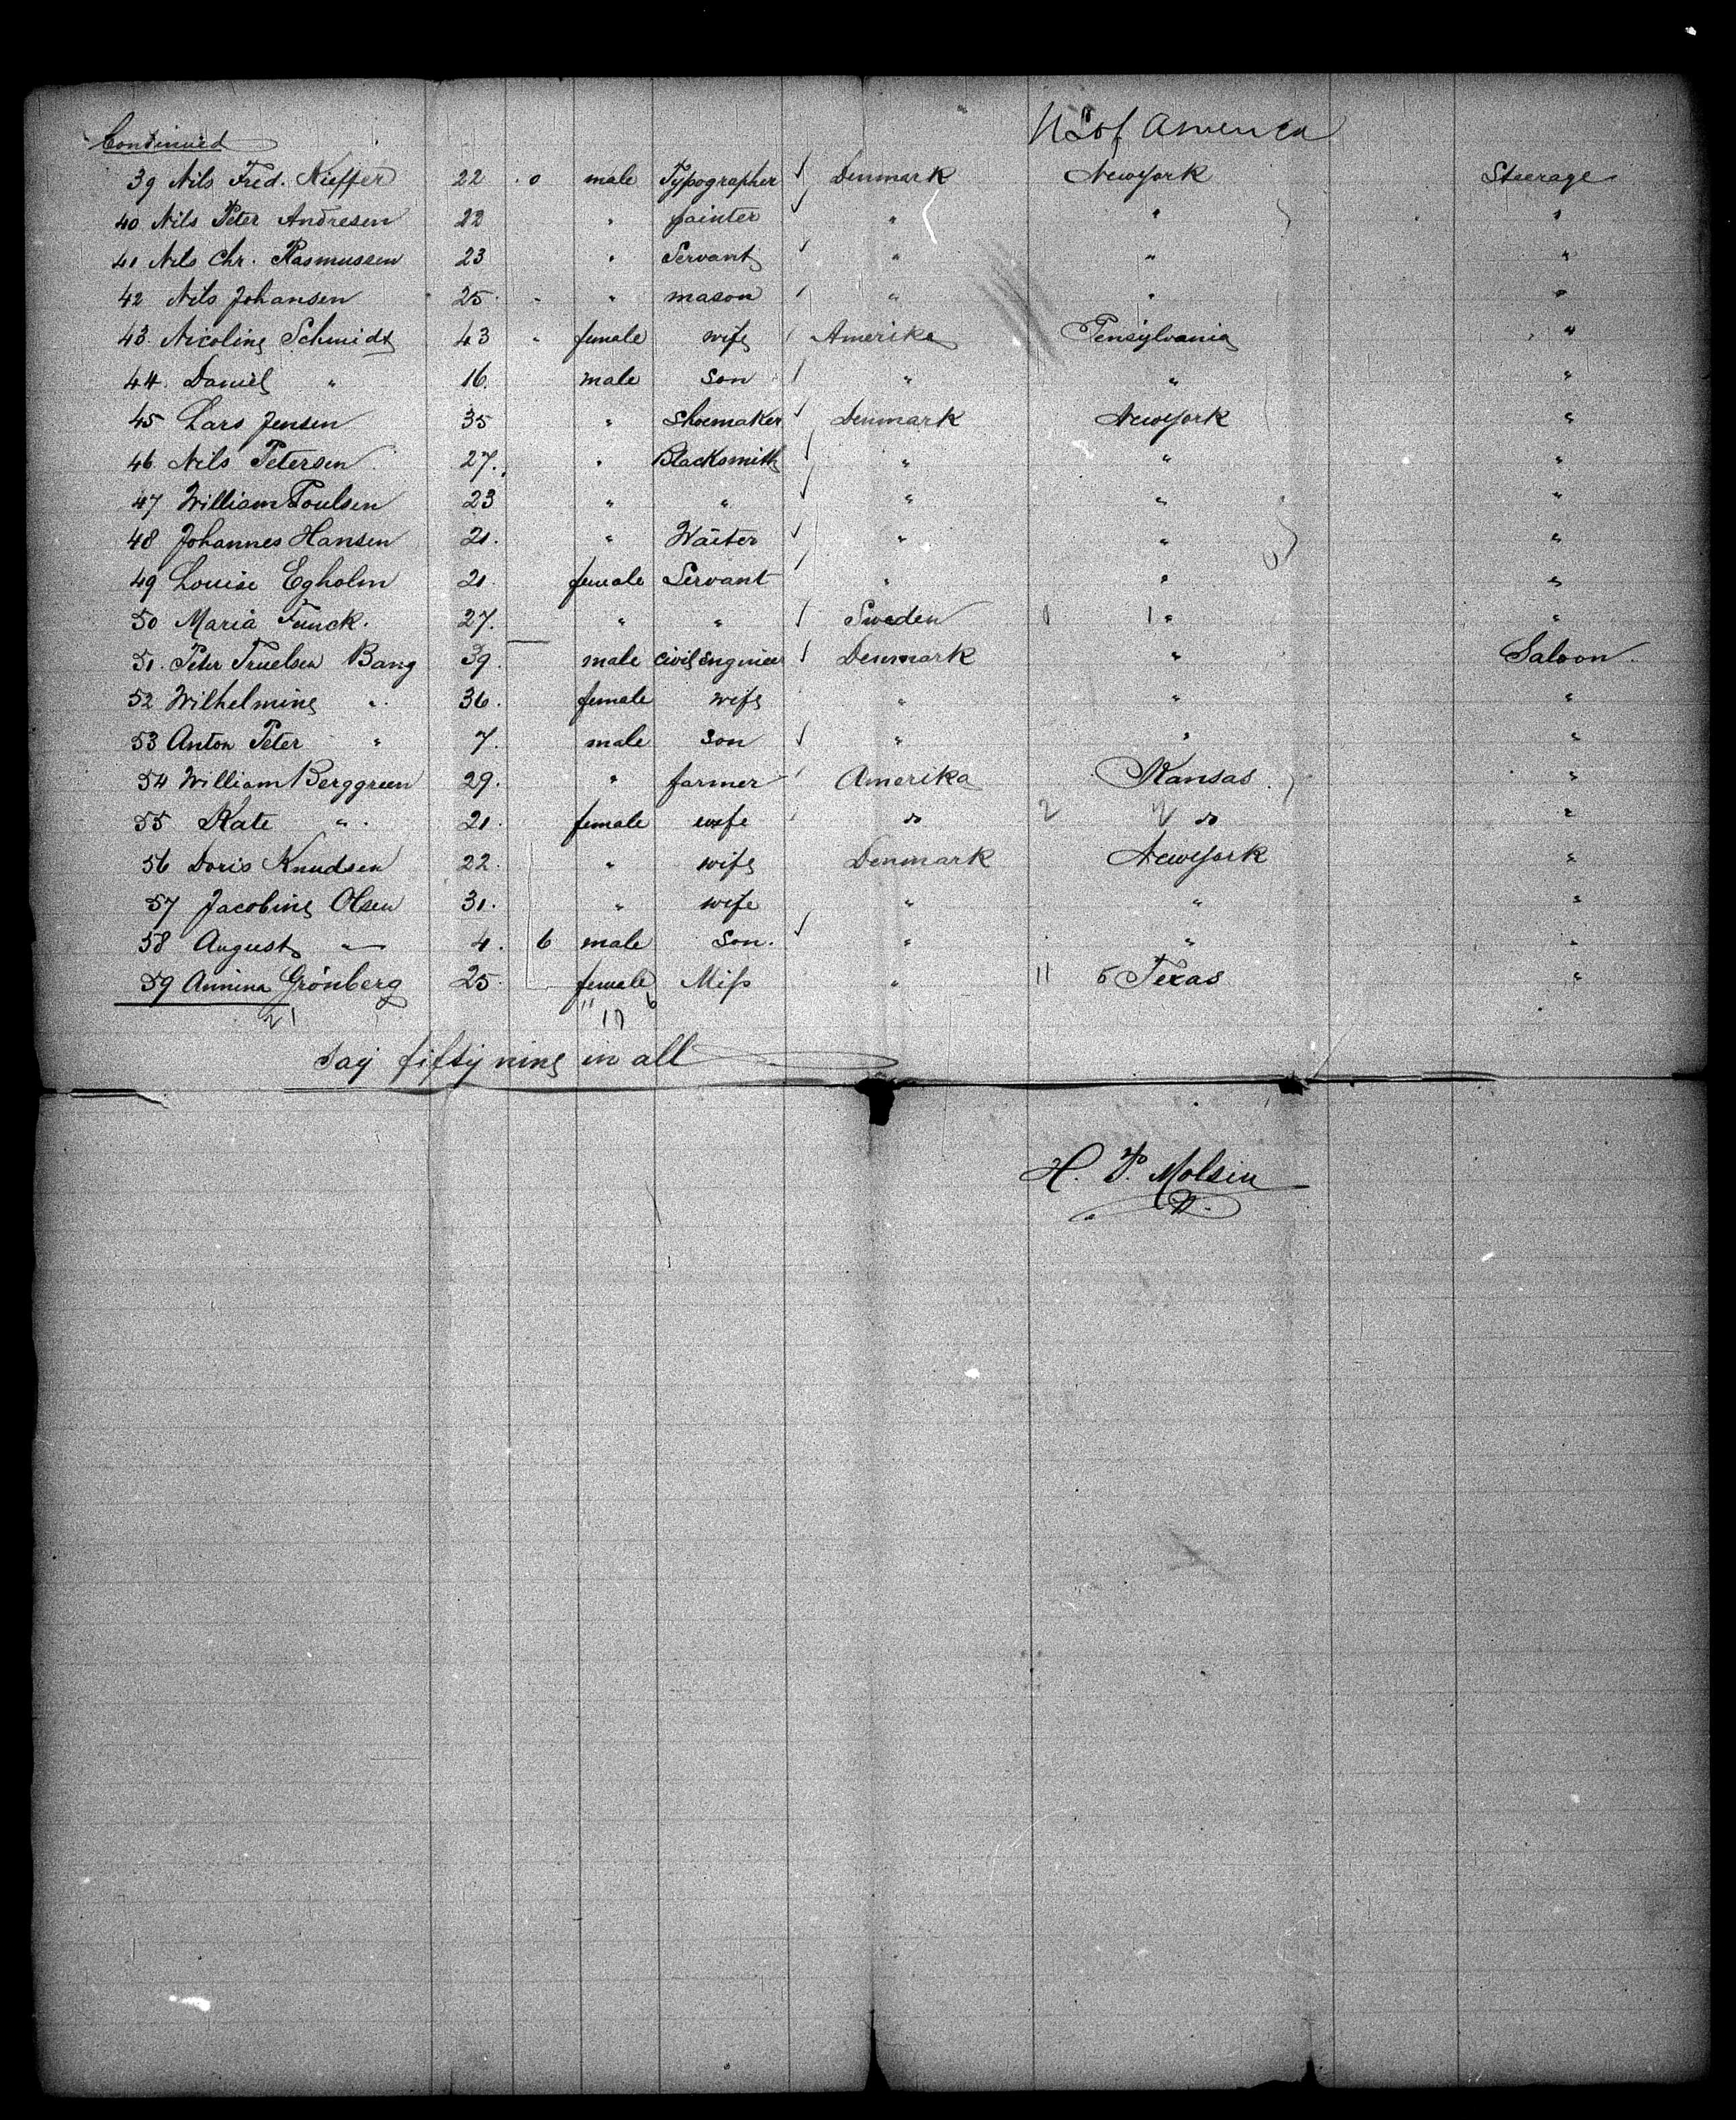 Continued U S of America
39 Nils Fred. Kieffer 22 . 0 male Typographer ✓ Denmark New York Steerage
40 Nils Peter Andresen 22 " painter ✓ " " "
41 Nils Chr. Rasmussen 23 " Servant ✓ " " "
42 Nils Johansen 25 " " mason / " " "
43 Nicoline Schmidt 43 " female wife / Amerika Pensylvania "
44 Daniel " 16. male Son / " " "
45 Lars Jensen 35 " Shoemaker ✓ Denmark New York "
46 Nils Petersen 27. " Blacksmith / " " "
47 William Poulsen 23 " " ✓ " " "
48 Johannes Hansen 21. " Waiter ✓ " " "
49 Louise Egholm 21 female Servant / " " "
50 Maria Funck. 27. " " ✓ Sweden 1 1 " "
51. Peter Truelsen Bang 39. male civil Engineer ✓ Denmark " Saloon
52 Wilhelmine " 36. female wife " " "
53 Anton Peter " 7. male Son ✓ " " "
54 William Berggreen 29. " farmer / Amerika Kansas "
55 Kate " 21. female wife do 2 2 do "
56 Doris Knudsen 22. " wife Denmark New York "
57 Jacobine Olsen 31. " wife " " "
58 August " 4. 6 male Son. ✓ " " "
59 Annina Grönberg 25. female Miss " 11 5 Texas "
21 11 6
17
Say fifty nine in all
H. P. Molsen